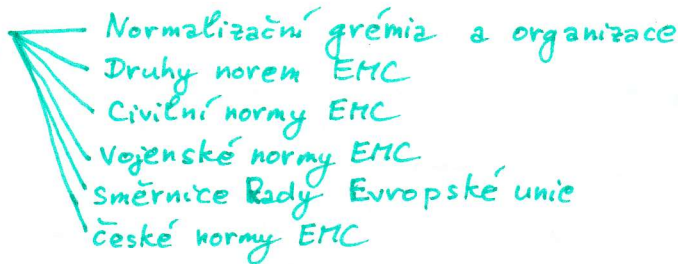 Normalizační grémia a organizace
Druhy norem EMC
Civilní normy EMC
Vojenské normy EMC
Směrnice Rady Evropské unie
České normy EMC